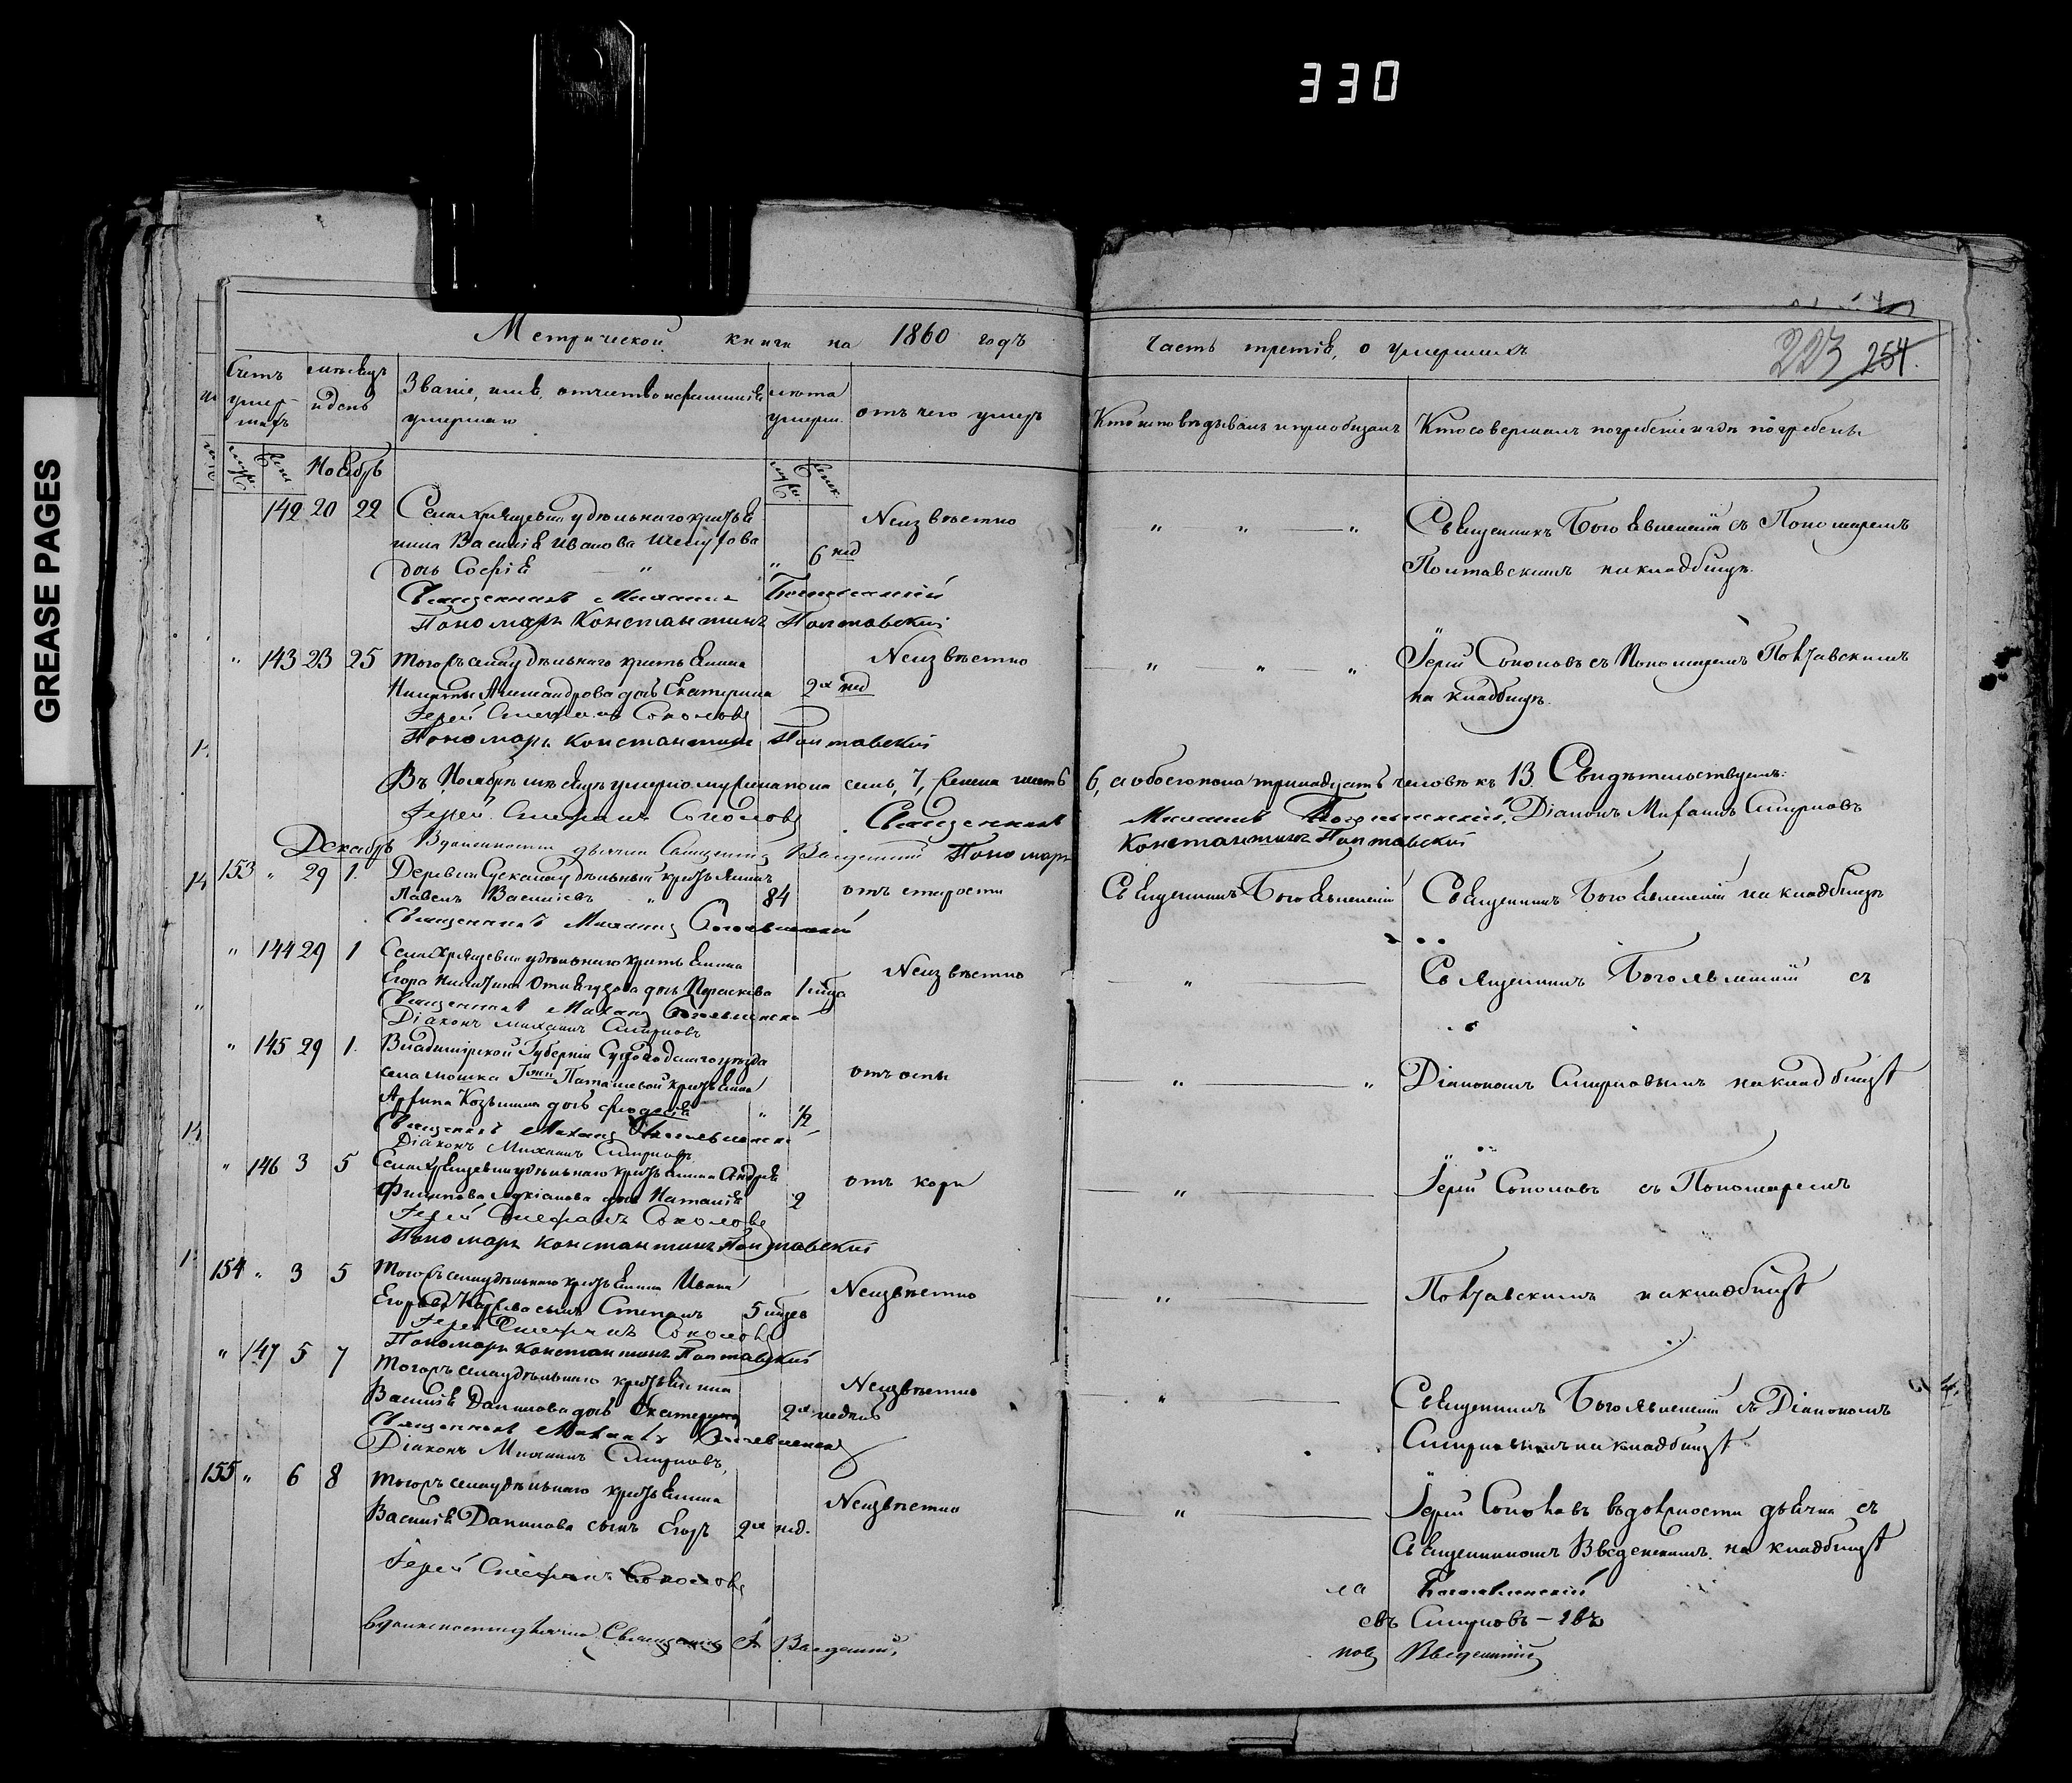 330
GREASE PAGES
Метрической книги на 1860 годъ
Часть третія, о умершихъ
223 254.
Счетъ умер-шихъ
мѣсяцъ и день
Званіе, имя, отчество и фамилія умершаго
лѣта умерш.
отъ чего умеръ
Кто исповѣдывалъ и пріобщалъ
Кто совершалъ погребеніе и гдѣ погребены
Ноябрь
142 20 22 Села удѣльнаго крестья
нина Василія Иванова
дочь Софія " " 6 нед
Неизвѣстно
" " — "
Священникъ Богоявленскій съ Пономаремъ
Полтавскимъ на кладбищѣ.
Священникъ Михаилъ Богоявленскій
Пономарь Константинъ Полтавскій
" 143 23 25 Тогожъ села удѣльнаго крестьянина
Никиты Александрова дочь Екатерина 2х нед
Неизвѣстно
" — " — "
Іерей Соколовъ съ Пономаремъ Полтавскимъ
на кладбищѣ.
Іерей Стефанъ Соколовъ
Пономарь Константинъ Полтавскій
Въ Ноябрѣ мѣсяцѣ умерло мужеска пола семь, 7, женска шесть 6, а обоего пола тринадцать человѣкъ 13. Свидѣтельствуемъ:
Іерей Стефанъ Соколовъ Священникъ Михаилъ Богоявленскій, Діаконъ Михаилъ Смирновъ
В должности дьячка Священникъ Введенскій Пономарь Константинъ Полтавскій
Декабрь
153 " 29 1. Деревни удѣльный крестьянинъ
Павелъ Васильевъ " 84
отъ старости
Священникъ Богоявленскій
Священникъ Богоявленскій на кладбищѣ
Священникъ Михаилъ Богоявленскій
" 144 29 1 Села удѣльнаго крестьянина
Егора Никитина дочь Параскева 1 года
Неизвѣстно
"
Священникъ Богоявленскій съ
Священникъ Михаилъ Богоявленскій
Діаконъ Михаилъ Смирновъ
" 145 29 1. Владимірской Губерніи Судогодскаго уѣзда
села Мошка крестьянина
дочь " 1/2
отъ оспы
" — "
Діакономъ Смирновымъ на кладбищѣ
Священникъ Михаилъ Богоявленскій
Діаконъ Михаилъ Смирновъ
" 146 3 5 Села удѣльнаго крестьянина Андрея
Филипова дочь Наталія 2
отъ кори
"
Іерей Соколовъ съ Пономаремъ
Іерей Стефанъ Соколовъ
Пономарь Константинъ Полтавскій
154 " 3 5 Тогожъ села удѣльнаго крестьянина Ивана
Егорова сынъ Степанъ 5
Неизвѣстно
"
Полтавскимъ на кладбищѣ
Іерей Стефанъ Соколовъ
Пономарь Константинъ Полтавскій
" 147 5 7 Тогожъ села удѣльнаго крестьянина
Василія Данилова дочь Екатерина 2х недель
Неизвѣстно
"
Священникъ Богоявленскій съ Діакономъ
Смирновымъ на кладбищѣ
Священникъ Михаилъ Богоявленскій
Діаконъ Михаилъ Смирновъ
155 " 6 8 Тогожъ села удѣльнаго крестьянина
Василія Данилова сынъ Егоръ 2х нед.
Неизвѣстно
"
Іерей Соколовъ въ должности дьячка съ
Священникомъ Введенскимъ на кладбищѣ
Іерей Стефанъ Соколовъ
В должности дьячка Священникъ Введенскій
Богоявленскій
Смирновъ
Введенскій